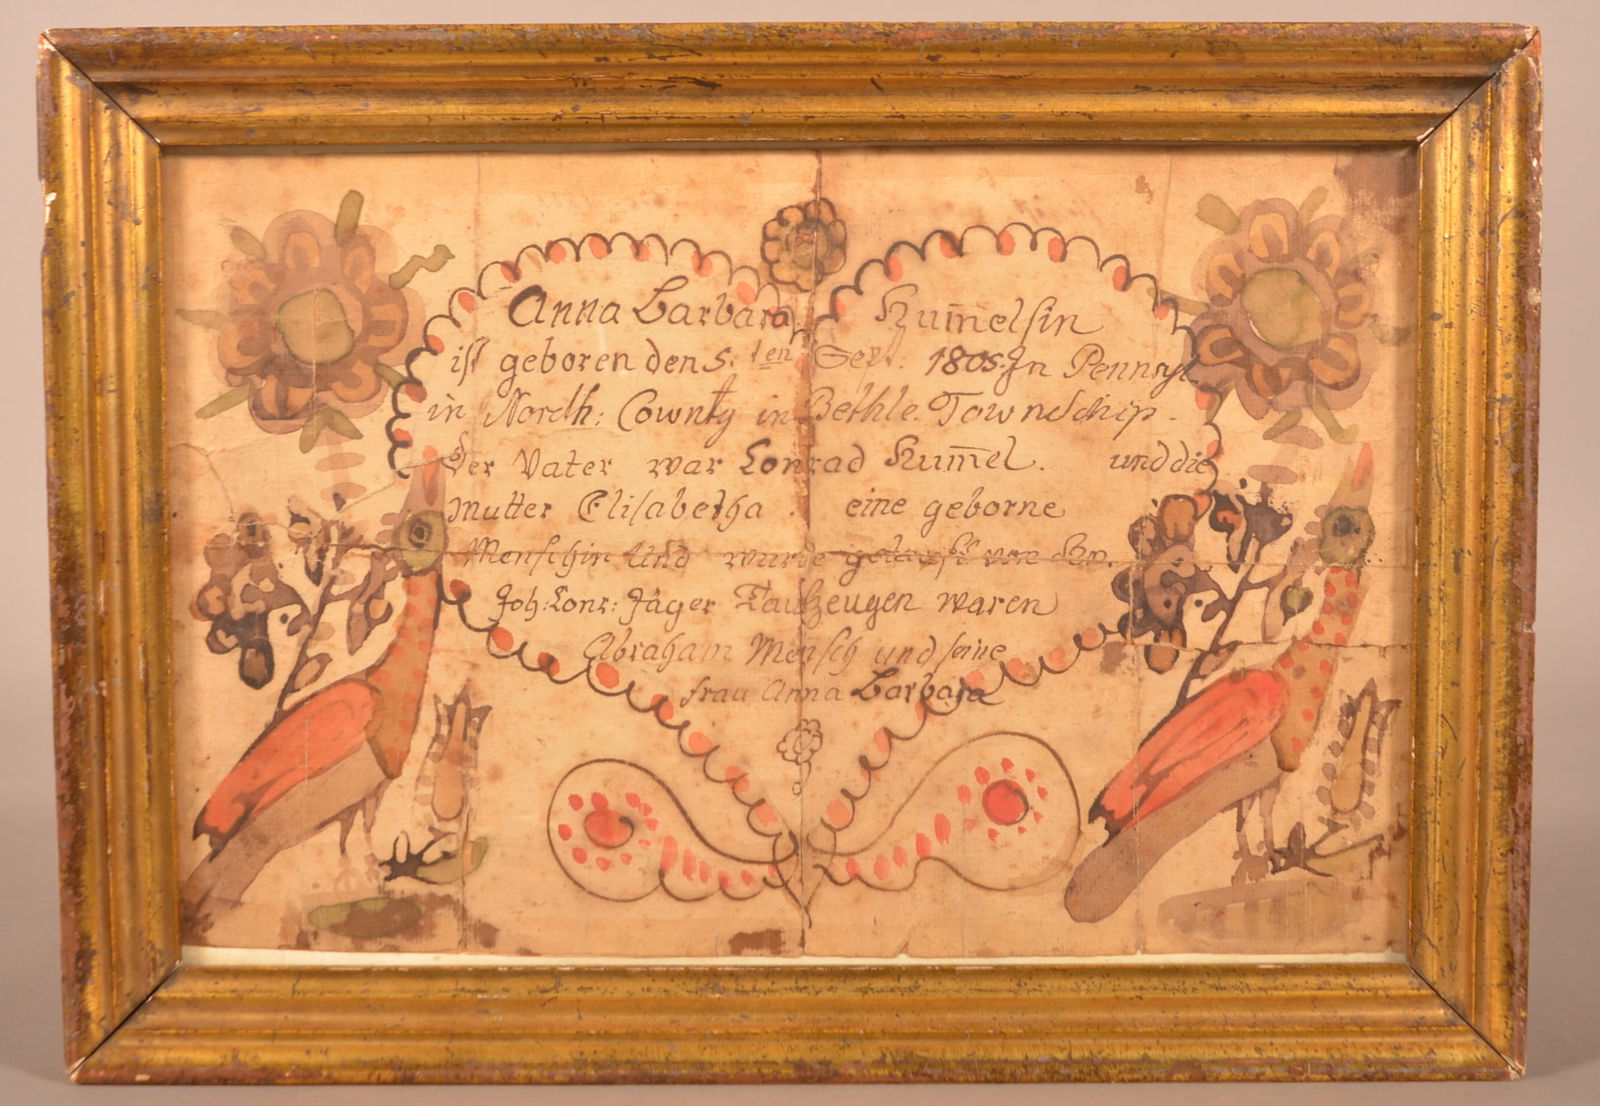 Anna Barbara Kum̅elsin
ist geboren den 5.ten Sept. 1805. In Pennsyl
in North: Cownty in Bethle. Townschip.
Der Vater war Conrad Kum̅el. und die
Mutter Elisabetha. eine geborne
Menschin Und wurde getauft von Hrn.
Joh: Conr: Jäger Taufzeugen waren
Abraham Mensch und seine
frau Anna Barbara